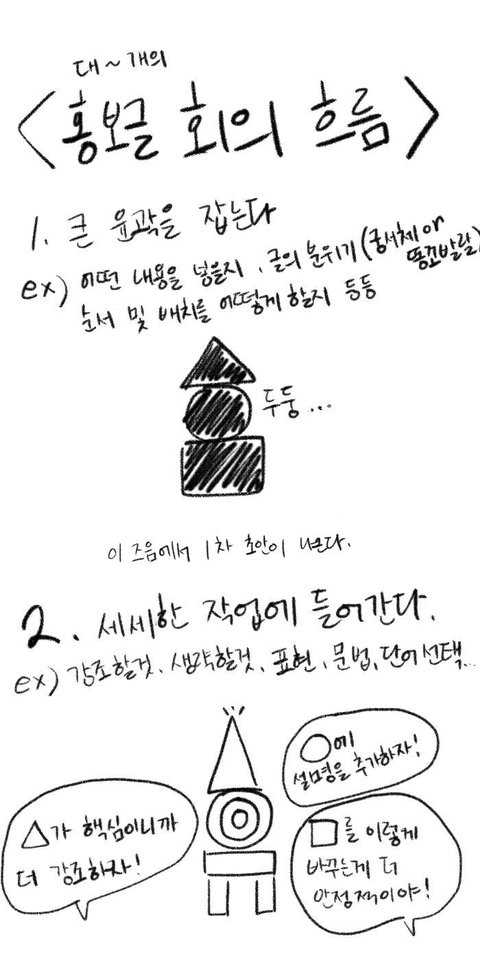 대~개의
<홍보글 회의 흐름>
1. 큰 윤곽을 잡는다
ex) 어떤 내용을 넣을지, 글의 분위기(궁서체 or 똥꼬발랄)
순서 및 배치를 어떻게 할지 등등
두둥...
이 즈음에서 1차 초안이 나온다.
2. 세세한 작업에 들어간다.
ex) 강조할것, 생략할것, 표현, 문법, 단어선택...
○에
설명을 추가하자!
△가 핵심이니까
더 강조하자!
□를 이렇게
바꾸는게 더
안정적이야!